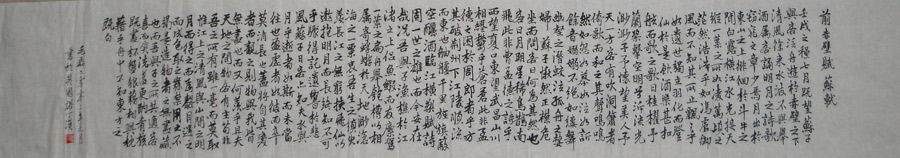 前赤壁賦 蘇軾
壬戌之秋七月既望蘇子
與客泛舟遊於赤壁之下
清風徐來水波不興舉酒
屬客誦明月之詩歌
窈窕之章少焉月出於
東山之上徘徊於斗牛之
間白露橫江水光接天
縱一葦之所如凌萬頃之
茫然浩浩乎如馮虛御
風而不知其所止飄飄乎
如遺世獨立羽化而登
仙於是飲酒樂甚扣
舷而歌之歌曰桂櫂兮
蘭槳擊空明兮泝流光
渺渺兮予懷望美人兮
天一方客有吹洞簫者
倚歌而和之其聲嗚嗚
然如怨如慕如泣如訴
餘音嫋嫋不絕如縷舞
幽壑之潛蛟泣孤舟之嫠
婦蘇子愀然正襟危
坐而問客曰何為其然也
客曰月明星稀烏鵲南
飛此非曹孟德之詩乎
西望夏口東望武昌山川
相繆鬱乎蒼蒼此非孟
德之困於周郎者乎方
其破荊州下江陵順流
而東也舳艫千里旌旗蔽
空釃酒臨江橫槊賦詩
固一世之雄也而今安在
哉況吾與子漁樵於江
渚之上侶魚蝦而友麋鹿
駕一葉之扁舟舉匏樽以相
屬寄蜉蝣於天地渺滄
海之一粟哀吾生之須臾
羨長江之無窮挾飛仙以
遨遊抱明月而長終知不可
乎驟得託遺響於悲
風蘇子曰客亦知夫水與
月乎逝者如斯而未嘗
往也盈虛者如彼而卒
莫消長也蓋將自其變
者而觀之則
物與我皆
無盡也而又何羨乎且夫
天地之間物各有主苟非
吾之所有雖一毫而莫取
惟江上之清風與山間之明
月耳得之而為聲目遇之
而成色取之無禁用之不
竭是造物者之無盡藏
也而吾與子之所共適客
喜而笑洗盞更酌肴核
既盡杯盤狼藉相與枕
藉乎舟中不知東方之
既白